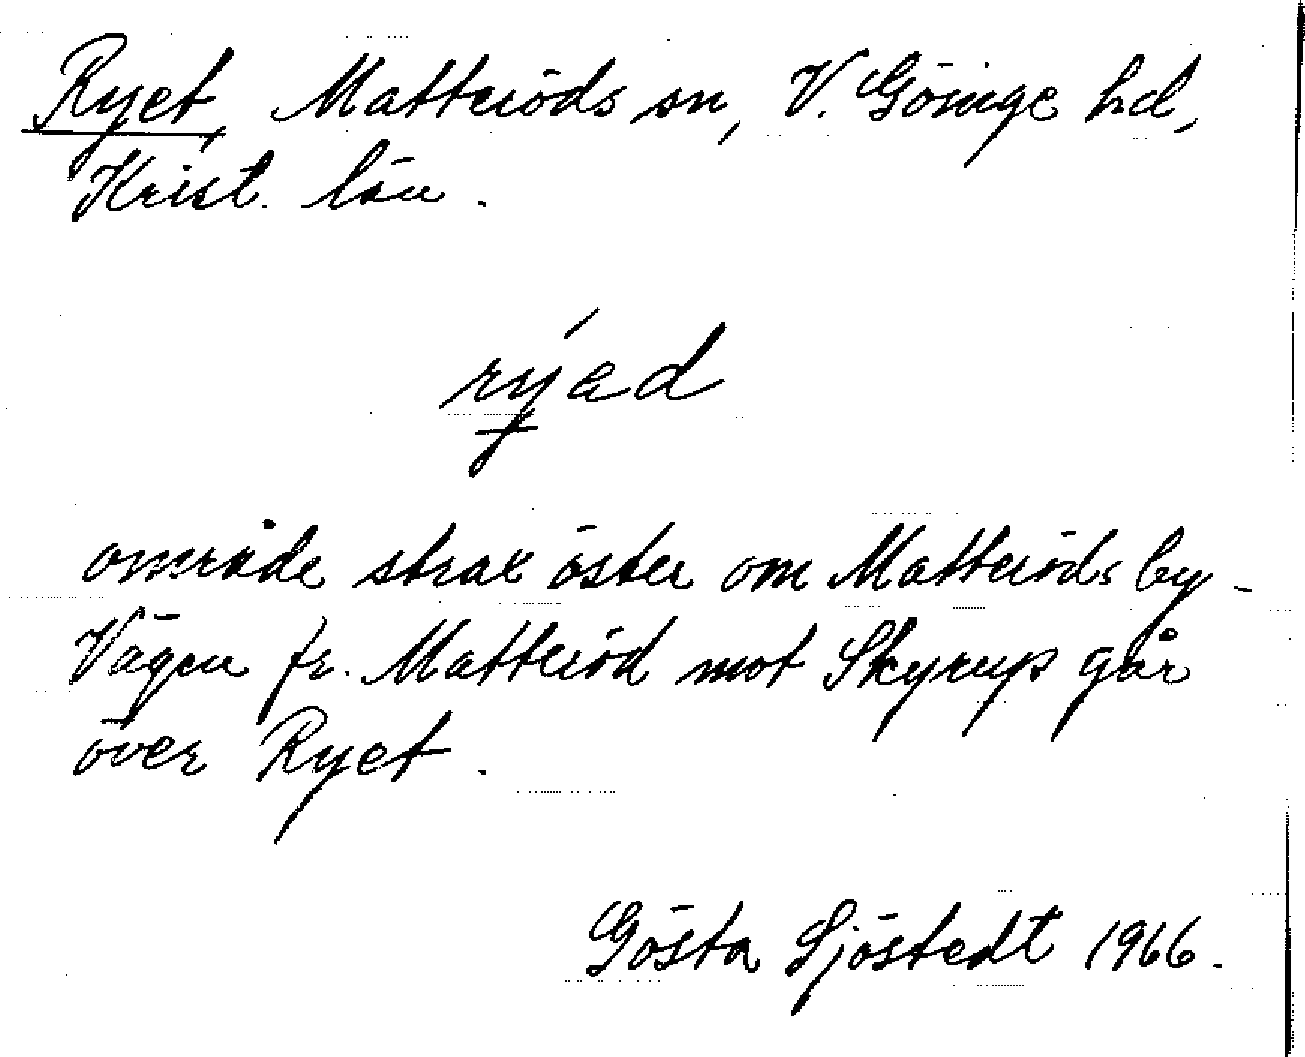 Ryet, Matteröds sn, V. Göinge hd,
Krist. län.
rýad
område strax öster om Matteröds by.
Vägen fr. Matteröd mot Skyrup går
över Ryet.
Gösta Sjöstedt 1966.